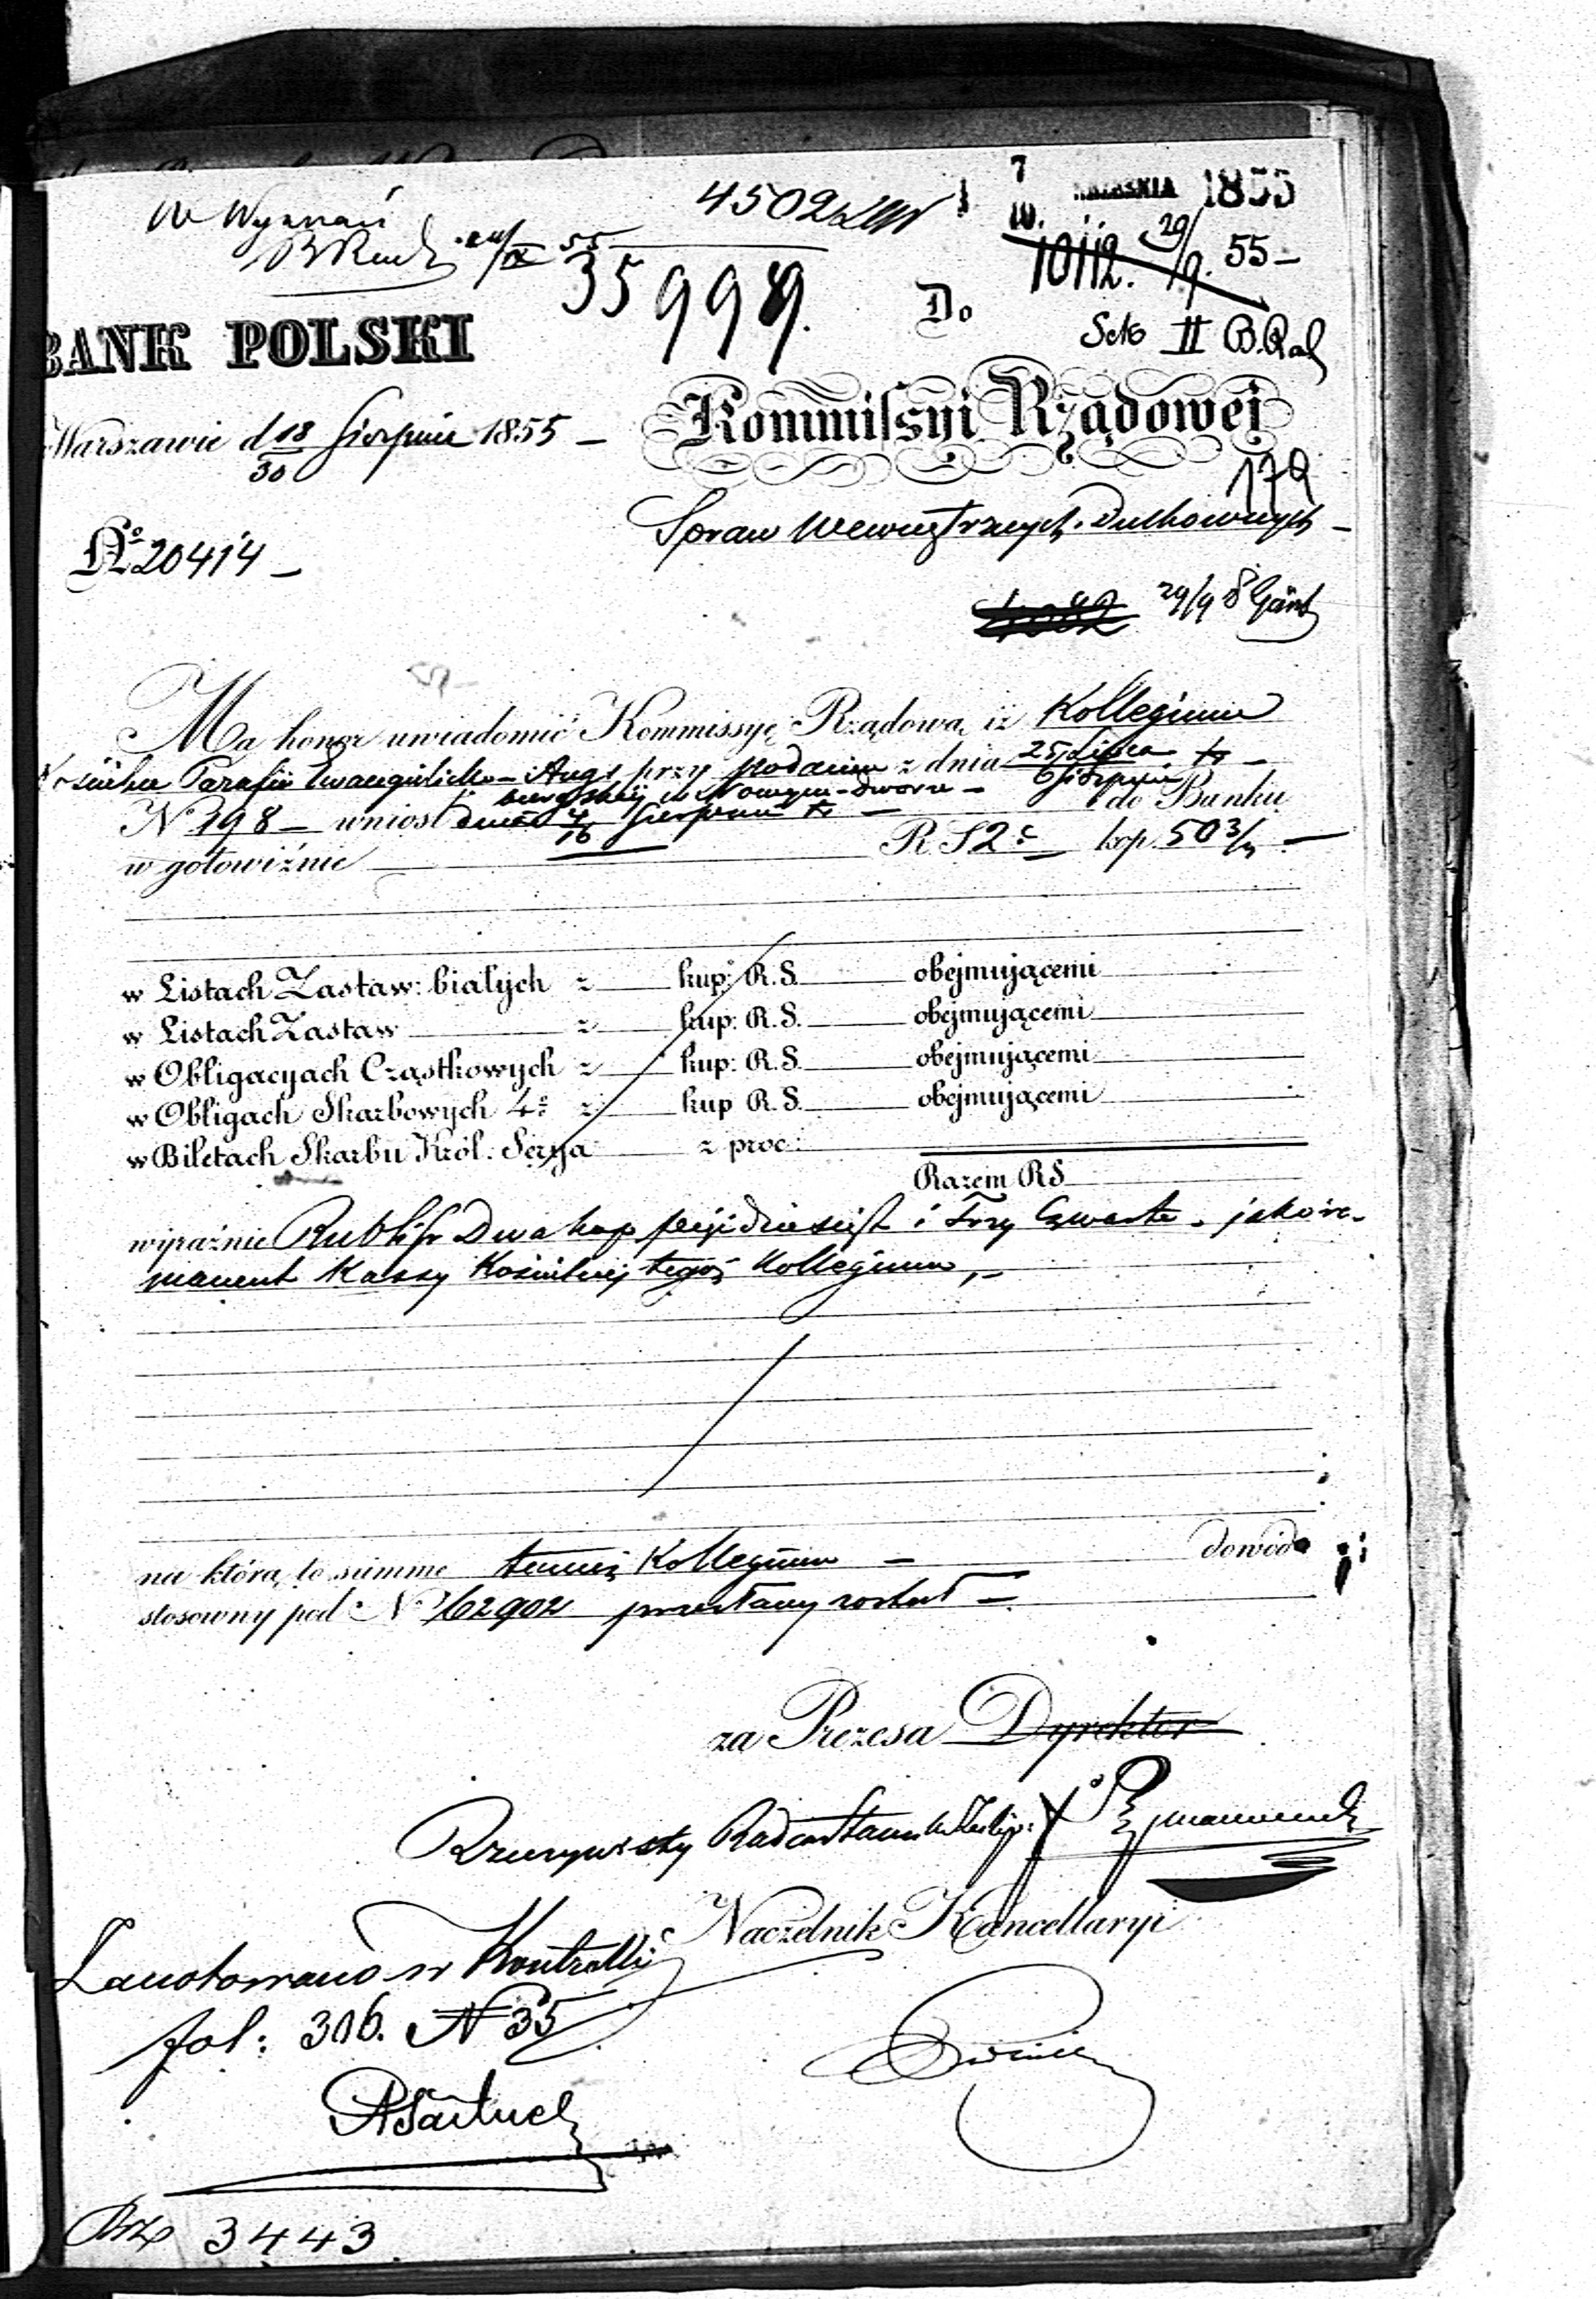 W Wyznań
4502
7
1855
35999.
10112. 29/9. 55 –
Do
Sek II B. Ral
BANK POLSKI
Kommissyi Rządowej
Warszawie d 18/30 Sierpnia 1855 –
179
Spraw Wewnętrznych. Duchownych –
No 20414 –
4082 29/9
Ma honor uwiadomić Kommissyę Rządową iż Kollegium
Kościelne Parafii Ewangielicko – Augs przy podaniu z dnia 25 Lipca / 6 Sierpnia tr –
burgskiej w Nowym-Dworu –
N 198 – wniosł dnia 4/16 Sierpnia tr – do Banku
w gotowiźnie R S 2 kop. 50 3/4 –
w Listach Zastaw: białych z kup: R.S. obejmującemi
w Listach Zastaw z kup: R.S. obejmującemi
w Obligacyach Cząstkowych z kup: R.S. obejmującemi
w Obligach Skarbowych 4 z kup R.S. obejmującemi
w Biletach Skarbu Król. Serya z proc:
Razem RS
wyraźnie Rubli sr Dwa kop pięćdziesiąt i trzy czwarte – jako re-
manent Kassy Kościelnej tegoż Kollegium, –
na którą to summę temuż Kollegium – dowód
stosowny pod N 62902 przesłany został –
za Prezesa Dyrektor
Rzeczywisty Radca Stanu
Naczelnik Kancellaryi
Zanotowano w Kontrolli
fol: 306. N 35
3443